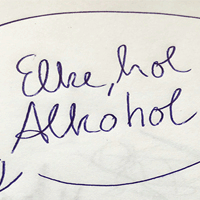 Elke, hol
Alkohol